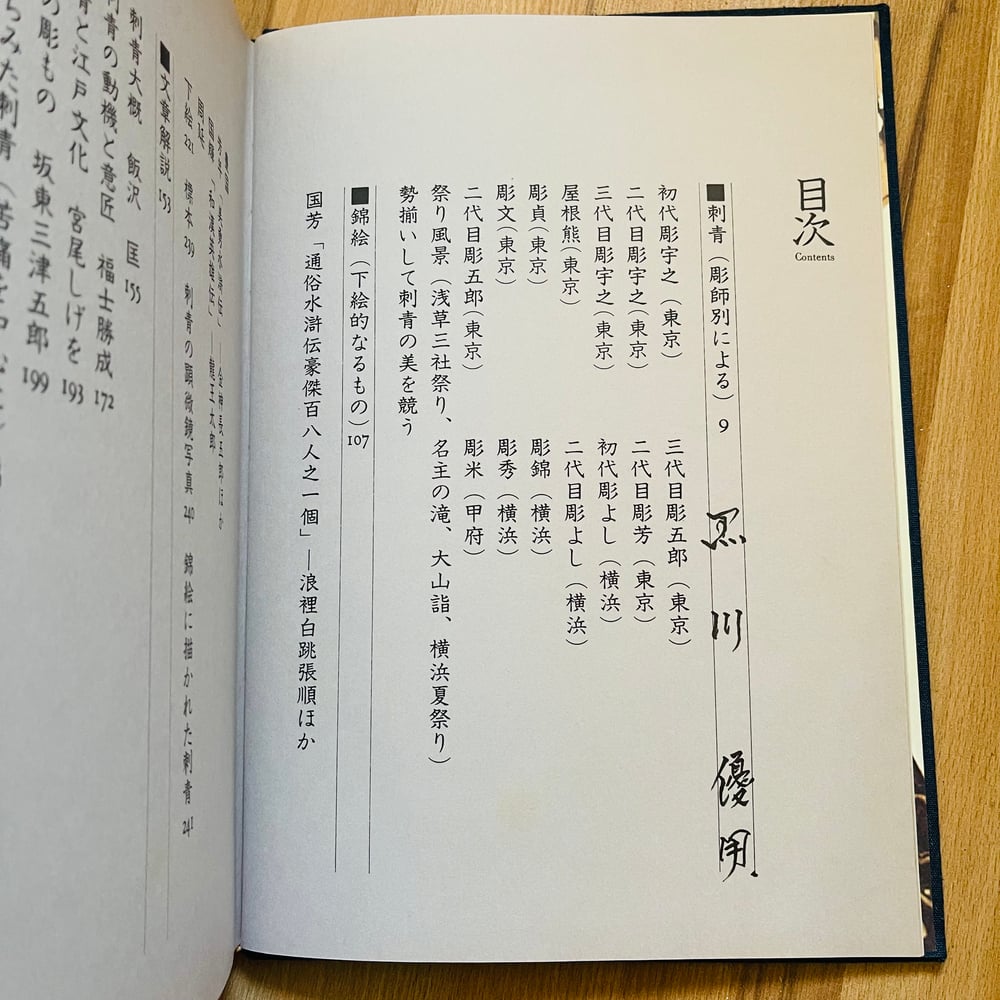 目次
Contents
■刺青(彫師別による) 9
黒川 優
初代彫宇之(東京) 三代目彫五郎(東京)
二代目彫宇之(東京) 二代目彫芳(東京)
三代目彫宇之(東京) 初代彫よし(横浜)
屋根熊(東京) 二代目彫よし(横浜)
彫貞(東京) 彫錦(横浜)
彫文(東京) 彫秀(横浜)
二代目彫五郎(東京) 彫米(甲府)
祭り風景(浅草三社祭り、名主の滝、大山詣、横浜夏祭り)
勢揃いして刺青の美を競う
■錦絵(下絵的なるもの) 107
国芳「通俗水滸伝豪傑百八人之一個」—浪裡白跳張順ほか
周延
下絵 221 標本 239 刺青の顕微鏡写真 240 錦絵に描かれた刺青 241
■文章解説 153
刺青大概 飯沢 匡 155
刺青の動機と意匠 福士勝成 172
青と江戸文化 宮尾しげを 193
の彫もの 坂東三津五郎 199